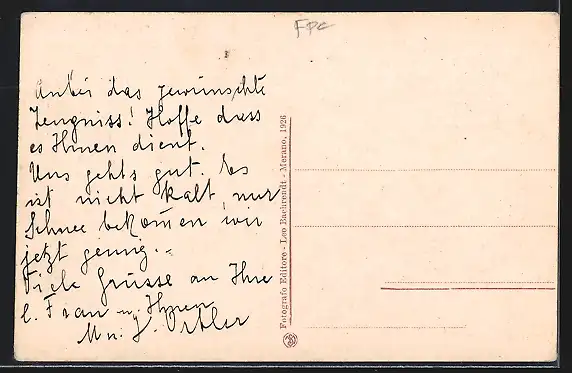 FPC
Anbei das gewünschte
Zeugniss! Hoffe dass
es Ihnen dient.
Uns gehts gut. Es
ist nicht kalt, nur
Schnee bekom̄en wir
jetzt genug.-
Viele Grüsse an Ihre
l. Frau u. Ihnen
Ortler
Fotografo Editore - Leo Baehrendt - Merano, 1926